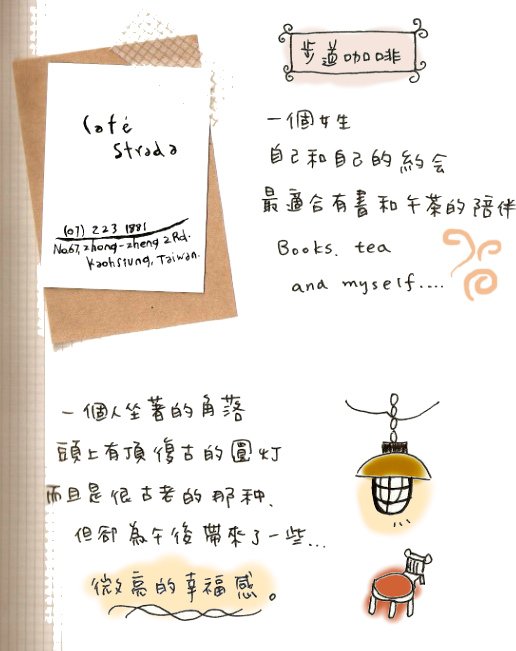 步道咖啡
Café
Strada
(07) 223 1881
No.67, Zhong-zheng 2 Rd.
Kaohsiung, Taiwan.
一個女生
自己和自己的約会
最適合有書和午茶的陪伴
Books. tea
and myself....
一個人坐著的角落
頭上有頂復古的圓灯
而且是很古老的那种、
但卻為午後帶來了一些...
微亮的幸福感。